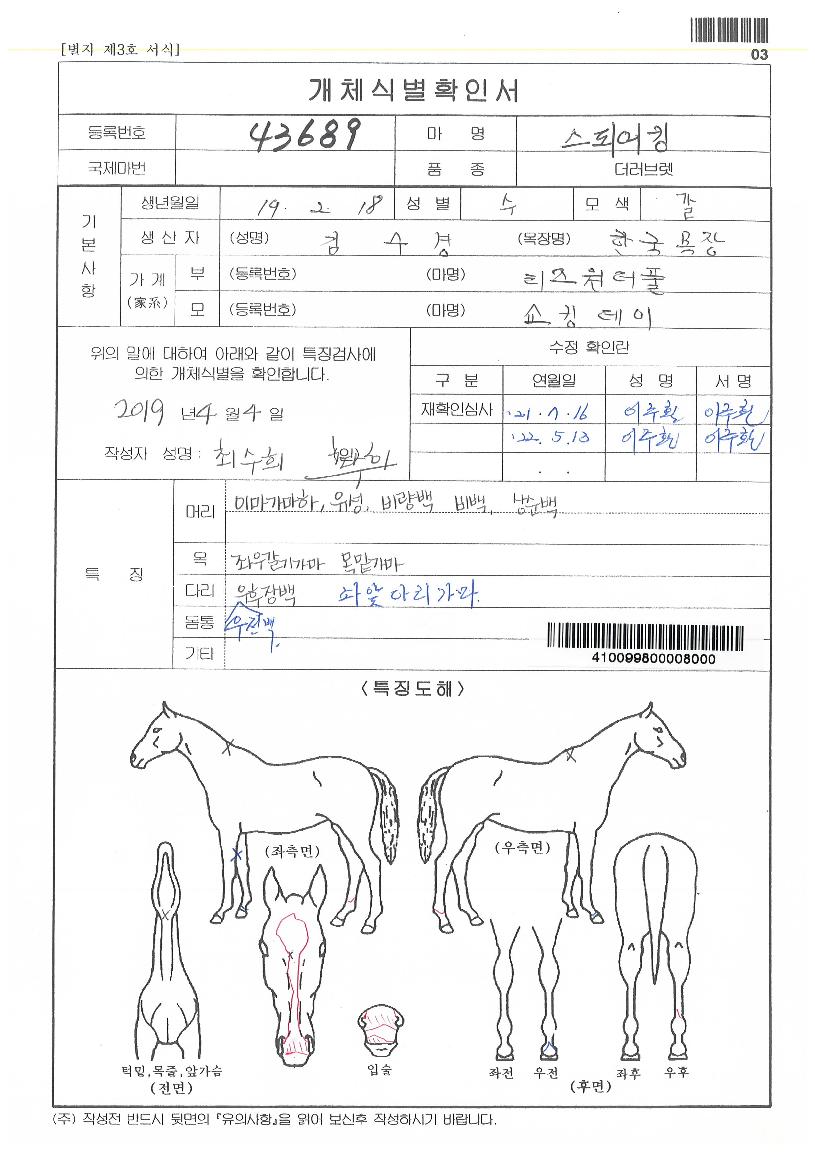 [별지 제3호 서식]
03
개체식별확인서
등록번호 43689 마 명 스토리어킹
국제마번 품 종 더러브렛
기본사항
생년월일 19. 2. 18 성 별 수 모 색 갈
생 산 자 (성명) 김 수 경 (목장명) 한국목장
가 계 (家系) 부 (등록번호) (마명) 티즈원더풀
모 (등록번호) (마명) 쇼킹데이
위의 말에 대하여 아래와 같이 특징검사에
의한 개체식별을 확인합니다.
2019 년 4 월 4 일
작성자 성명: 최수희 (인)
수정 확인란
구 분 연월일 성 명 서 명
재확인심사 '21. 7. 16
'22. 5. 13
특 징
머리 이마가마하, 유성, 비량백 비백,
목 좌우갈기가마 목밑가마
다리 우후장백 좌앞다리가마.
몸통 우전백.
기타
410099800008000
<특징도해>
(좌측면)
(우측면)
턱밑,목줄,앞가슴
(전면)
입술
좌전 우전
(후면)
좌후 우후
(주) 작성전 반드시 뒷면의 『유의사항』을 읽어 보신후 작성하시기 바랍니다.